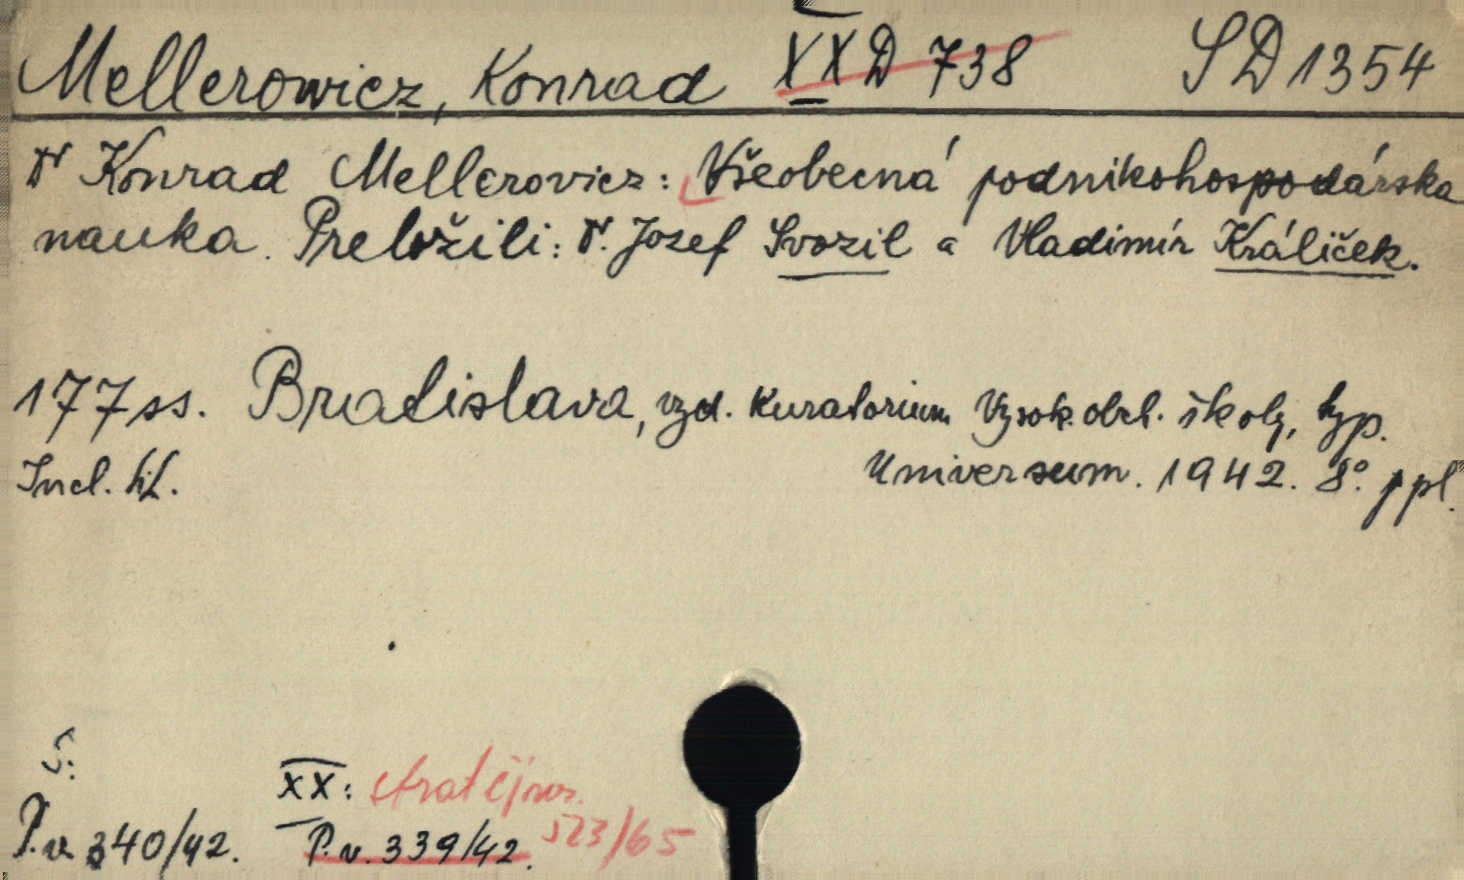 Mellerowicz, Konrad XX D 738 SD 1354
Dr Konrad Mellerovicz: Všeobecná podnikohospodárska
nauka. Preložili: Dr. Jozef Svozil a Vladimír Králiček.
177 ss. Bratislava, vyd. Kuratorium Vysok. obch. školy, typ.
Incl. lit. Universum. 1942. 8° ppl.
Š:
P.v. 340/42. XX:
P.v. 339/42. 523/65